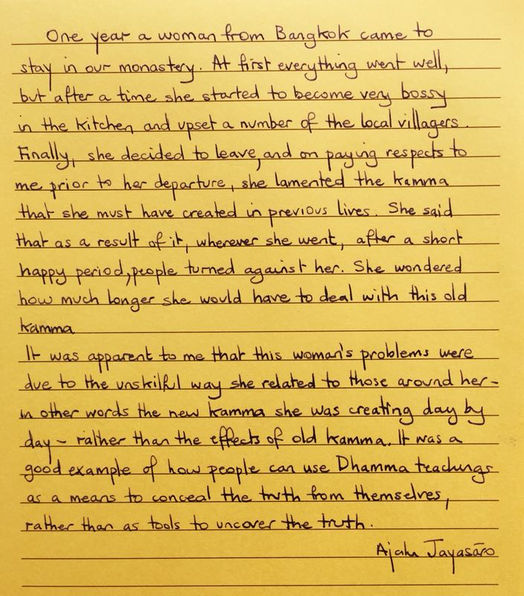 One year a woman from Bangkok came to
stay in our monastery. At first everything went well,
but after a time she started to become very bossy
in the kitchen and upset a number of the local villagers.
Finally, she decided to leave, and on paying respects to
me prior to her departure, she lamented the kamma
that she must have created in previous lives. She said
that as a result of it, wherever she went, after a short
happy period, people turned against her. She wondered
how much longer she would have to deal with this old
kamma
It was apparent to me that this woman's problems were
due to the unskilful way she related to those around her -
in other words the new kamma she was creating day by
day - rather than the effects of old kamma. It was a
good example of how people can use Dhamma teachings
as a means to conceal the truth from themselves,
rather than as tools to uncover the truth.
Ajahn Jayasāro